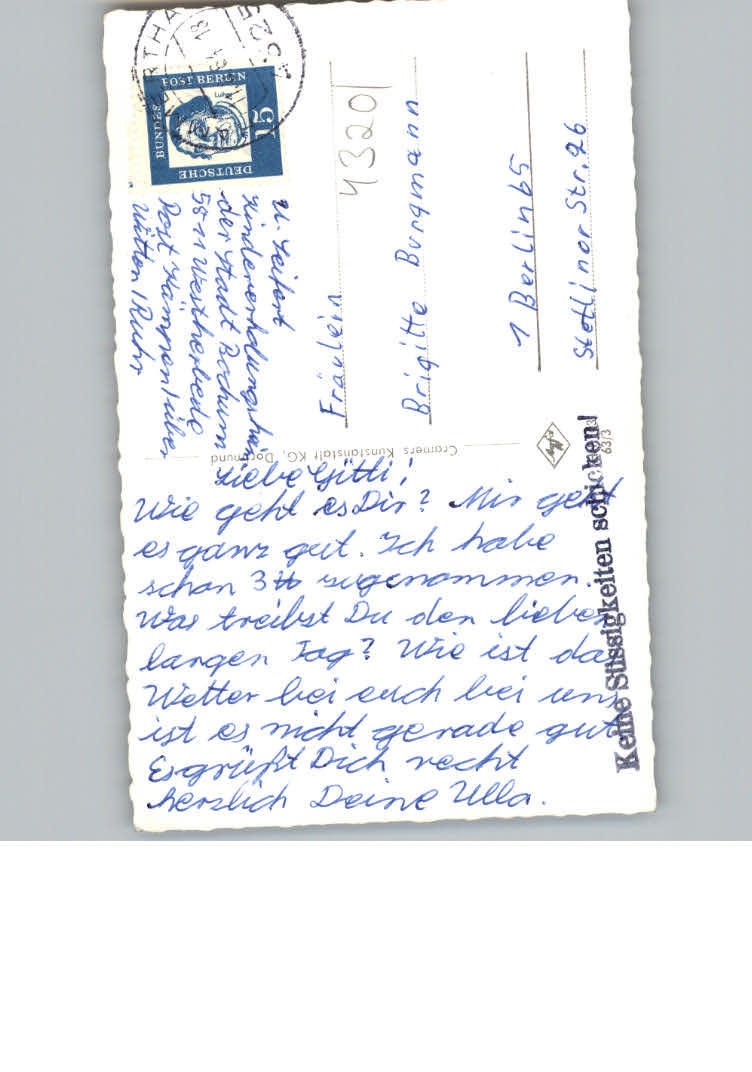 Liebe Gitti!
Wie geht es Dir? Mir geht
es ganz gut. Ich habe
schon 3 ℔ zugenommen.
Was treibst Du den lieben
langen Tag? Wie ist das
Wetter bei euch bei uns
ist es nicht gerade gut
Es grüßt Dich recht
herzlich Deine Ulla.
U. Seifert
Kindererholungsheim
der Stadt Bochum
5811 Westherbede
Post Kämpen über
Witten/Ruhr
DEUTSCHE
BUNDESPOST BERLIN
15
Luther
4320
Fräulein
Brigitte Burgmann
1 Berlin 65
Stettiner Str. 26
Cramers Kunstanstalt KG, Dortmund
63/3
Keine Süssigkeiten schicken!